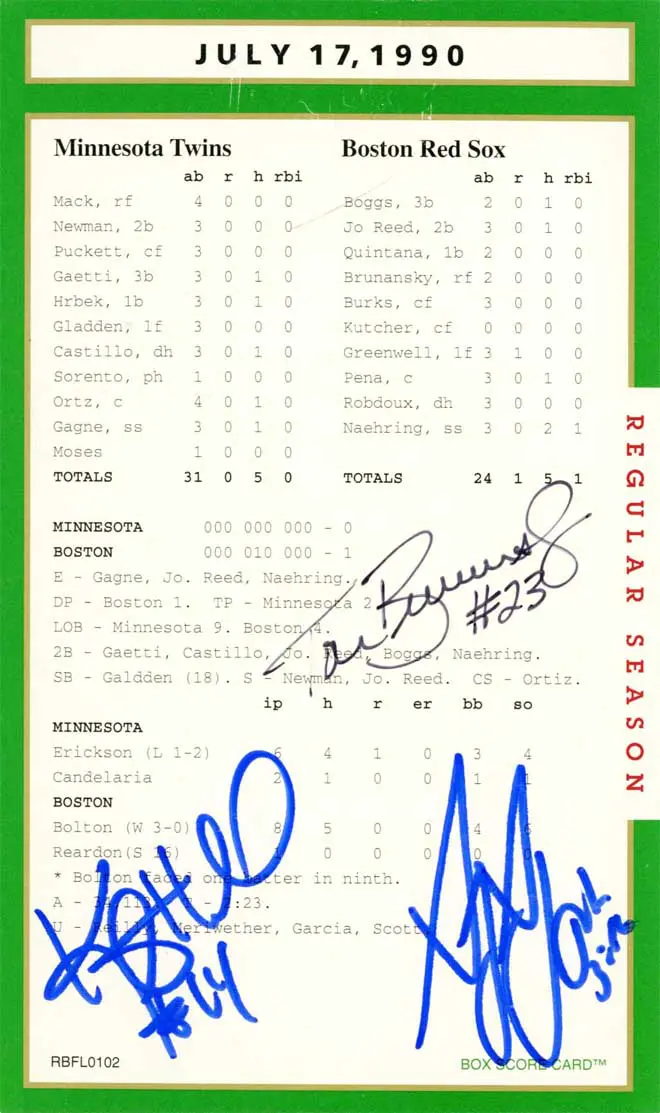 JULY 17, 1990
Minnesota Twins
ab r h rbi
Mack, rf 4 0 0 0
Newman, 2b 3 0 0 0
Puckett, cf 3 0 0 0
Gaetti, 3b 3 0 1 0
Hrbek, 1b 3 0 1 0
Gladden, lf 3 0 0 0
Castillo, dh 3 0 1 0
Sorento, ph 1 0 0 0
Ortz, c 4 0 1 0
Gagne, ss 3 0 1 0
Moses 1 0 0 0
TOTALS 31 0 5 0
Boston Red Sox
ab r h rbi
Boggs, 3b 2 0 1 0
Jo Reed, 2b 3 0 1 0
Quintana, 1b 2 0 0 0
Brunansky, rf 2 0 0 0
Burks, cf 3 0 0 0
Kutcher, cf 0 0 0 0
Greenwell, lf 3 1 0 0
Pena, c 3 0 1 0
Robdoux, dh 3 0 0 0
Naehring, ss 3 0 2 1
TOTALS 24 1 5 1
REGULAR SEASON
MINNESOTA 000 000 000 - 0
BOSTON 000 010 000 - 1
E - Gagne, Jo. Reed, Naehring.
DP - Boston 1. TP - Minnesota 2.
LOB - Minnesota 9. Boston 4.
#23
2B - Gaetti, Castillo, Jo. Reed, Boggs, Naehring.
SB - Galdden (18). S - Newman, Jo. Reed. CS - Ortiz.
ip h r er bb so
MINNESOTA
Erickson (L 1-2) 6 4 1 0 3 4
Candelaria 2 1 0 0 1 1
BOSTON
Bolton (W 3-0) 8 5 0 0 4 6
Reardon(S 16) 1 0 0 0 0 0
* Bolton faced one batter in ninth.
A - 34,113. T - 2:23.
U - Reilly, Meriwether, Garcia, Scott.
RBFL0102
BOX SCORE CARD™